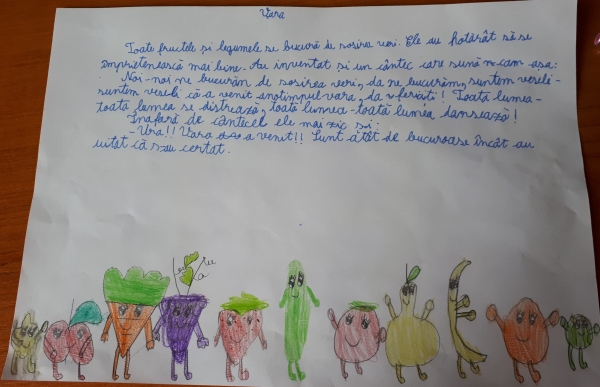 Vara
Toate fructele și legumele se bucură de sosirea verii. Ele au hotărât să se
împrietenească mai bine. Au inventat și un cântec care sună cam așa:
Noi-noi ne bucurăm de sosirea verii, da ne bucurăm, suntem veseli-
suntem veseli că a venit anotimpul vara, da fericiți! Toată lumea-
toată lumea se distrează, toată lumea-toată lumea dansează!
Înafară de cântecel ele mai zic și:
-Ura!! Vara a venit!! Sunt atât de bucuroase încât au
uitat că s-au certat.